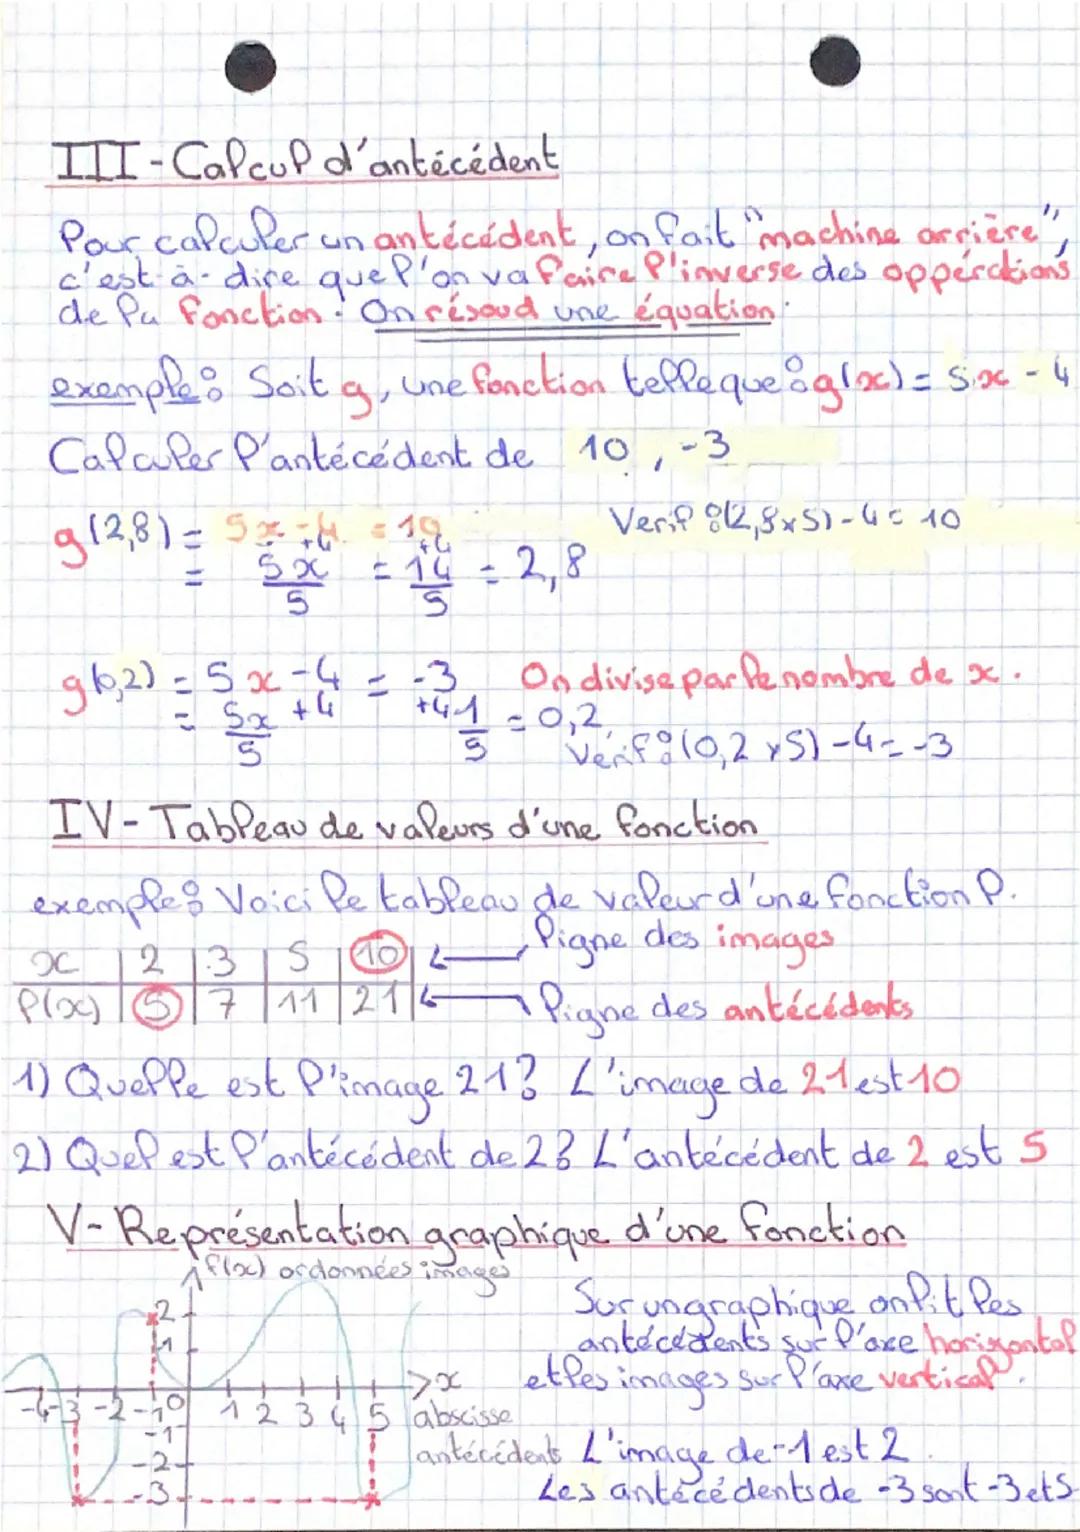 III - Calcul d'antécédent
Pour calculer un antécédent, on fait "machine arrière",
c'est-à-dire que l'on va faire l'inverse des oppérations
de la fonction. On résoud une équation.
exemple : Soit g, une fonction telle que : g(x) = 5x - 4
Calculer l'antécédent de 10, -3
g(2,8) = 5x - 4 = 10 Verif : (2,8x5) - 4 = 10
+4 +4
= 5x/5 = 14/5 = 2,8
g(0,2) = 5x - 4 = -3 On divise par le nombre de x.
+4 +4
= 5x/5 1/5 = 0,2
Verif : (0,2 x5) - 4 = -3
IV - Tableau de valeurs d'une fonction
exemple : Voici le tableau de valeur d'une fonction l.
x 2 3 5 10 ligne des images
l(x) 5 7 11 21 ligne des antécédents
1) Quelle est l'image 21? L'image de 21 est 10
2) Quel est l'antécédent de 2? L'antécédent de 2 est 5
V - Représentation graphique d'une fonction
f(x) ordonnées images
Sur un graphique on lit les
antécédents sur l'axe horizontal
et les images sur l'axe vertical.
2
1
-4 -3 -2 -1 0 1 2 3 4 5 x
abscisse
antécédents
-1
-2
-3
L'image de -1 est 2.
Les antécédents de -3 sont -3 et 5